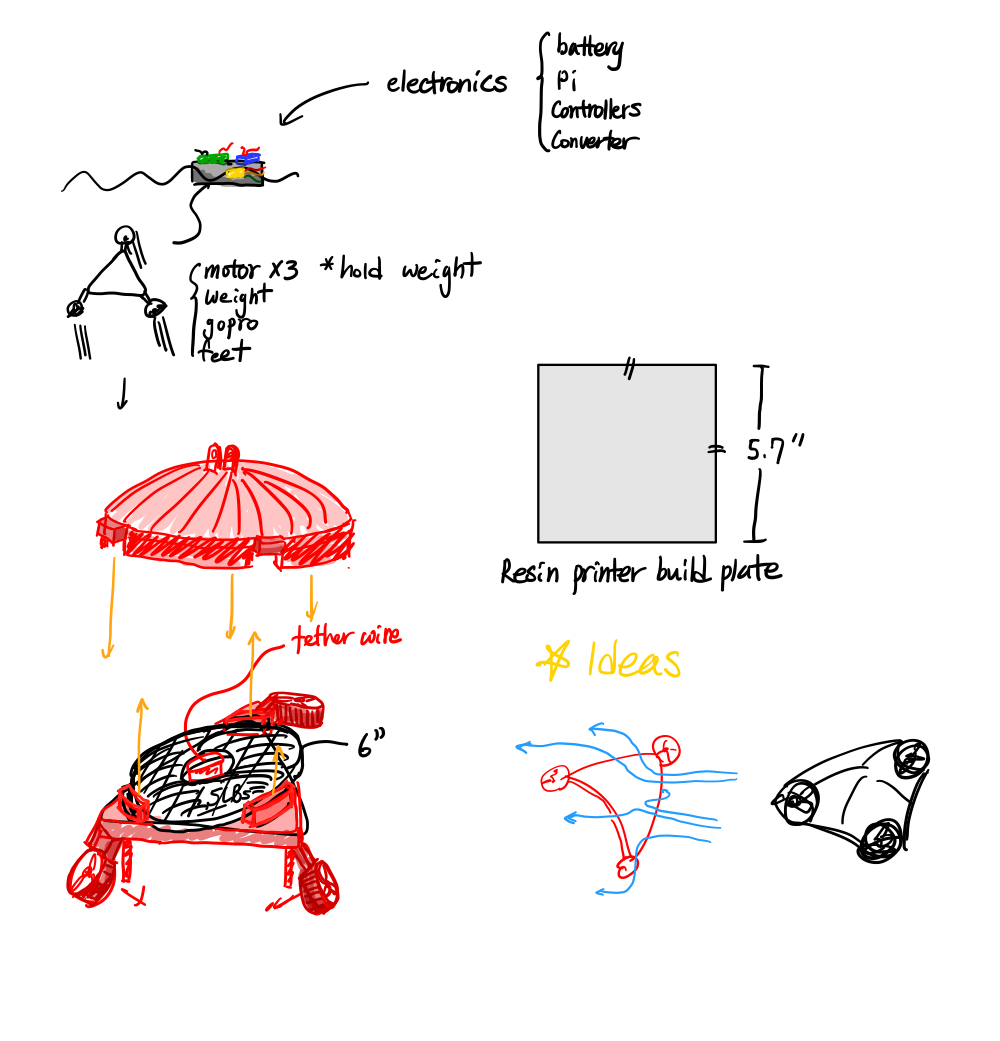 electronics
battery
Pi
Controllers
Converter
motor x3 *hold weight
weight
gopro
feet
5.7"
Resin printer build plate
tether wire
Ideas
6"